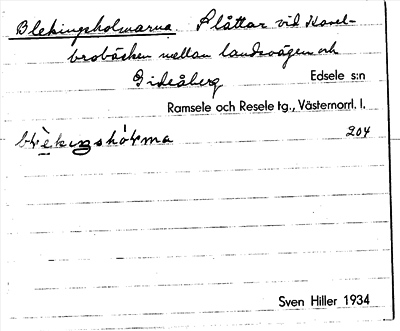 Blekingsholmarna Slåttar vid Kavel-
brobäcken mellan landsvägen och
Gideåberg Edsele s:n
Ramsele och Resele tg., Västernorrl. l.
blekingshólma 204
Sven Hiller 1934